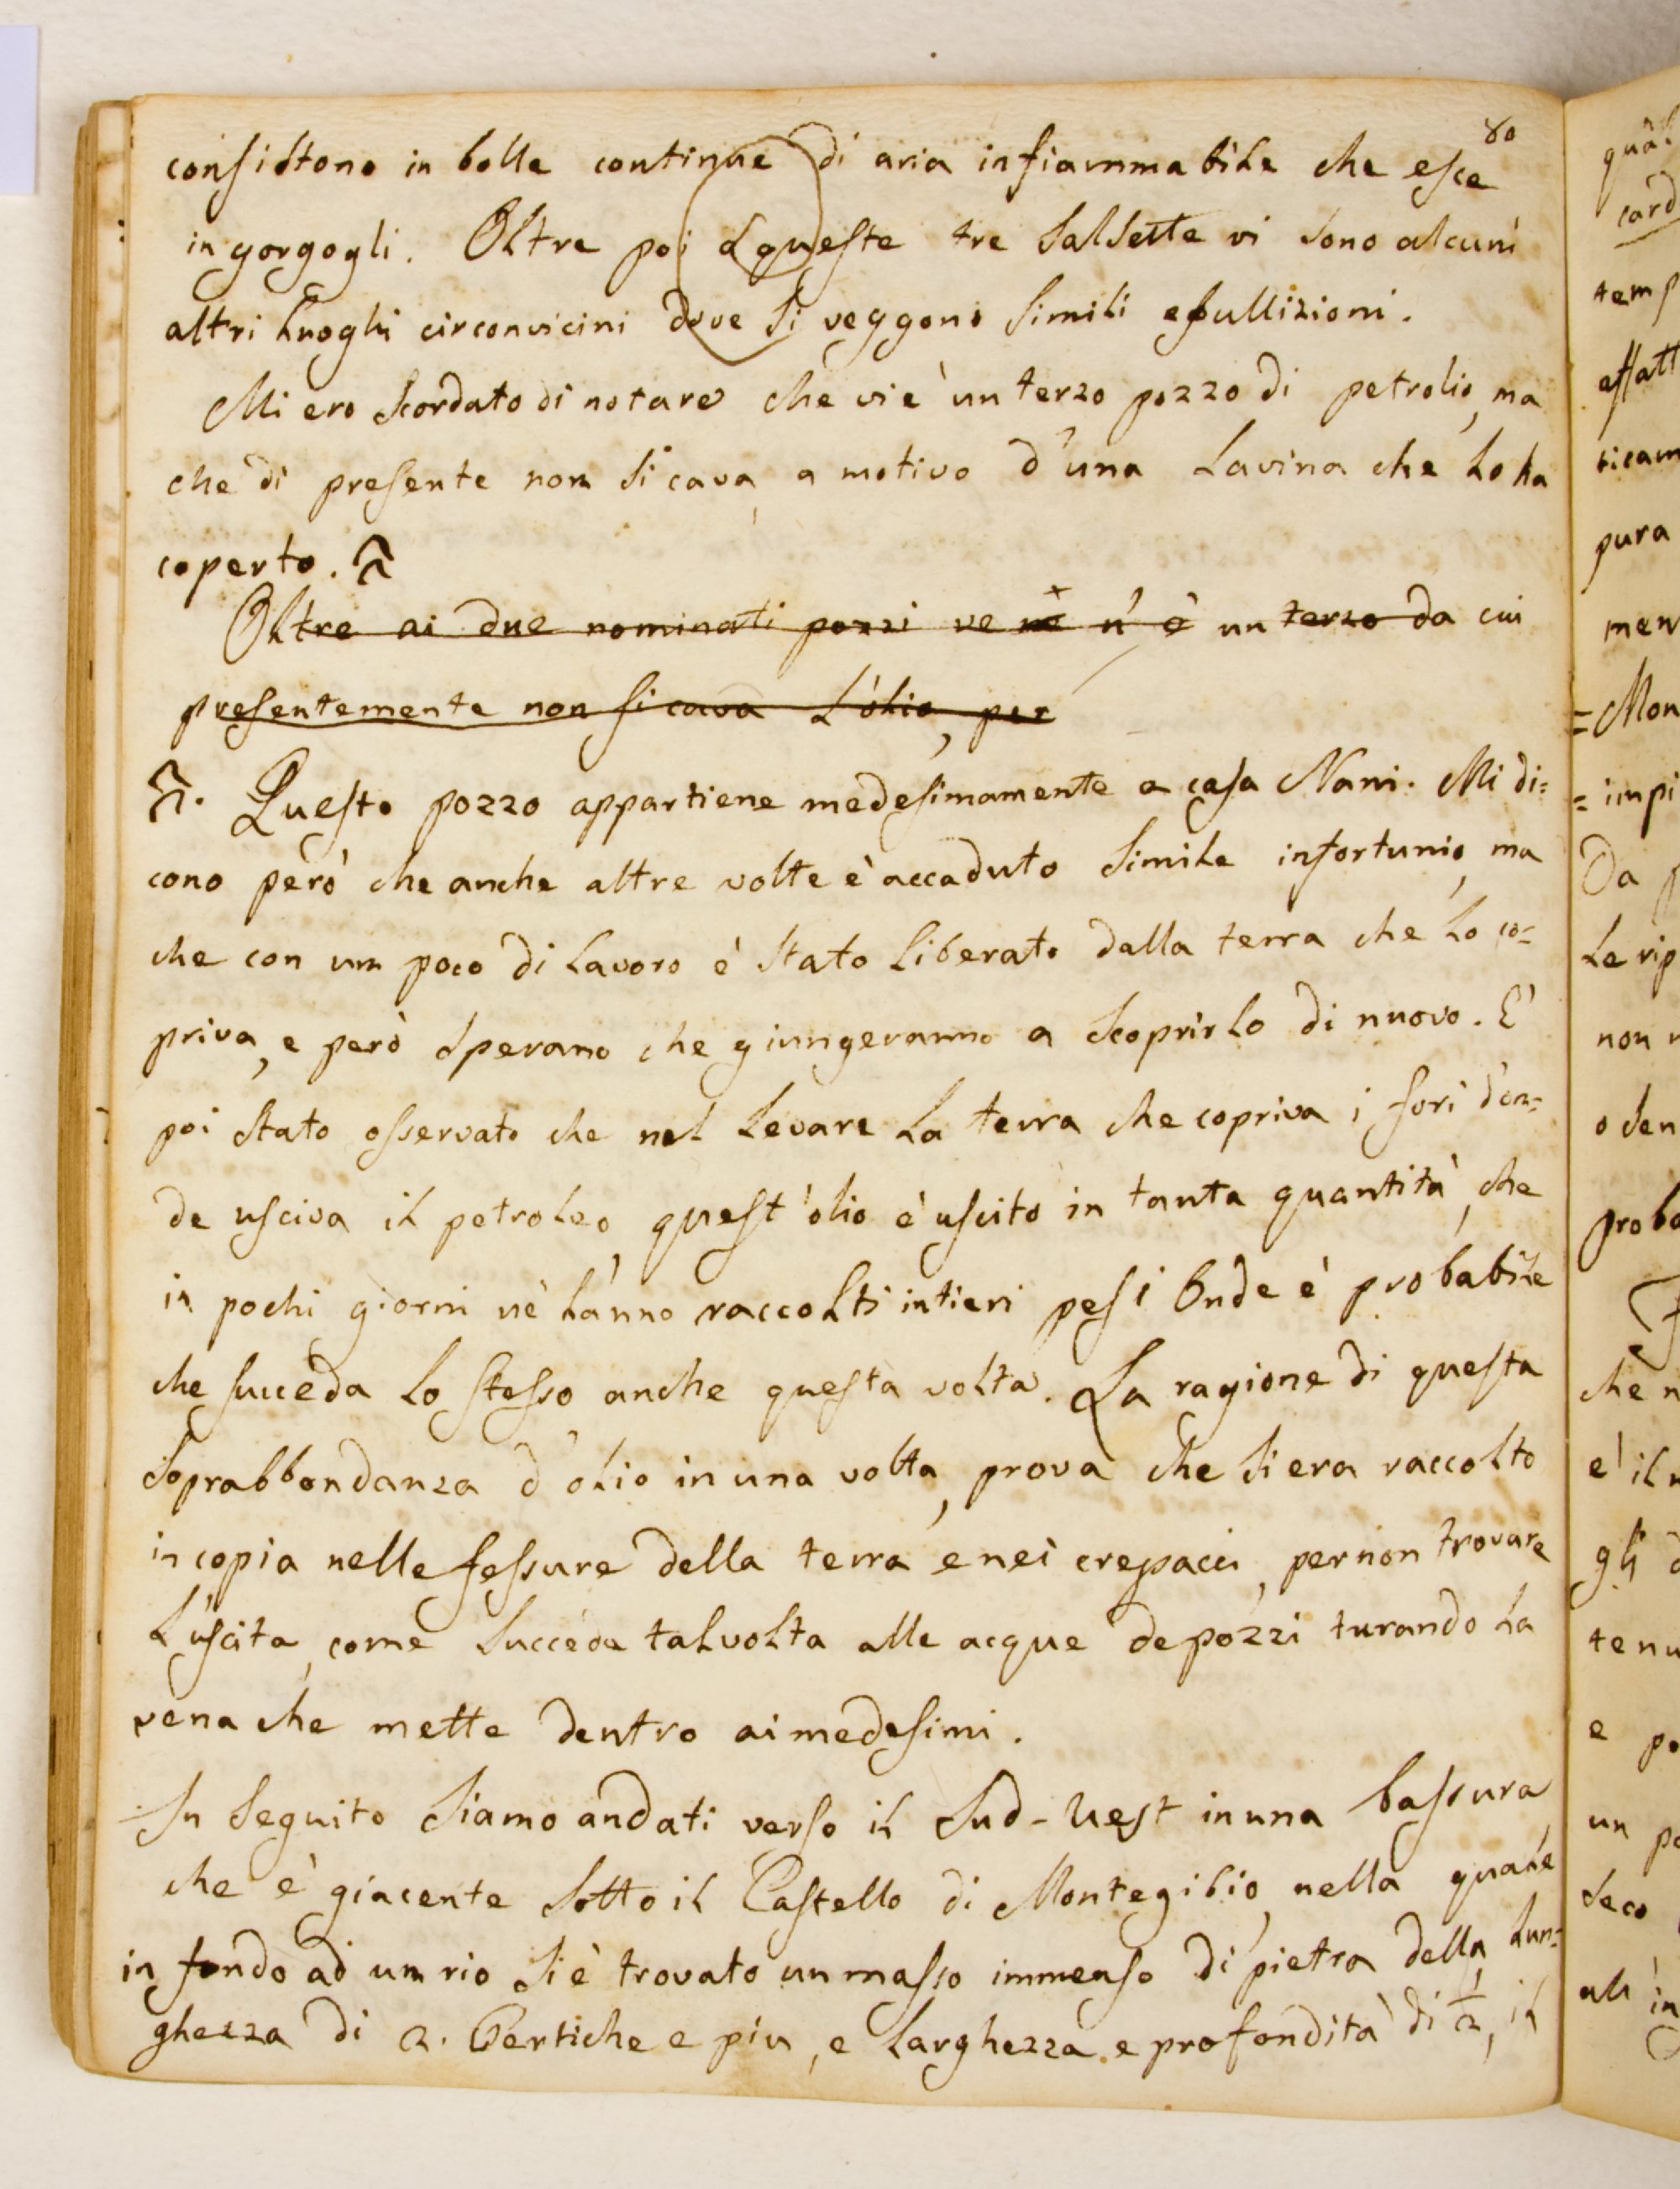 80
consistono in bolle continue di aria infiammabile che esce
in gorgogli. Oltre poi a queste tre Salsette vi sono alcuni
altri luoghi circonvicini dove si veggono simili ebullizioni.
Mi ero scordato di notare che vi è un terzo pozzo di petrolio, ma
che di presente non si cava, a motivo d'una Lavina che lo ha
coperto.
Oltre ai due nominati pozzi ve n'è un terzo da cui
presentemente non si cava l'olio, per
Questo pozzo appartiene medesimamente a casa Nani. Mi di=
cono però che anche altre volte è accaduto simile infortunio, ma
che con un poco di lavoro è stato liberato dalla terra che lo co=
priva, e però sperano che giungeranno a scoprirlo di nuovo. È
poi stato osservato che nel levare la terra che copriva i fori don=
de usciva il petroleo, quest'olio è uscito in tanta quantità, che
in pochi giorni nè hanno raccolti intieri pesi Onde è probabile
che succeda lo stesso anche questa volta. La ragione di questa
soprabbondanza d'olio in una volta, prova che si era raccolto
in copia nelle fessure della terra e nei crepacci, per non trovare
l'uscita, come succede talvolta alle acque de pozzi turando la
vena che mette dentro ai medesimi.
In seguito siamo andati verso il Sud-Uest in una bassura,
che è giacente sotto il Castello di Montegibio, nella quale
in fondo ad um rio si è trovato un masso immenso di pietra della lun=
ghezza di 2. Pertiche e più, e larghezza e profondità di 1/2, il
quàl
card
temp
pura
Mon
impi
Da
le rip
non
o sen
che n
è il
gli
tenu
e po
un po
seco